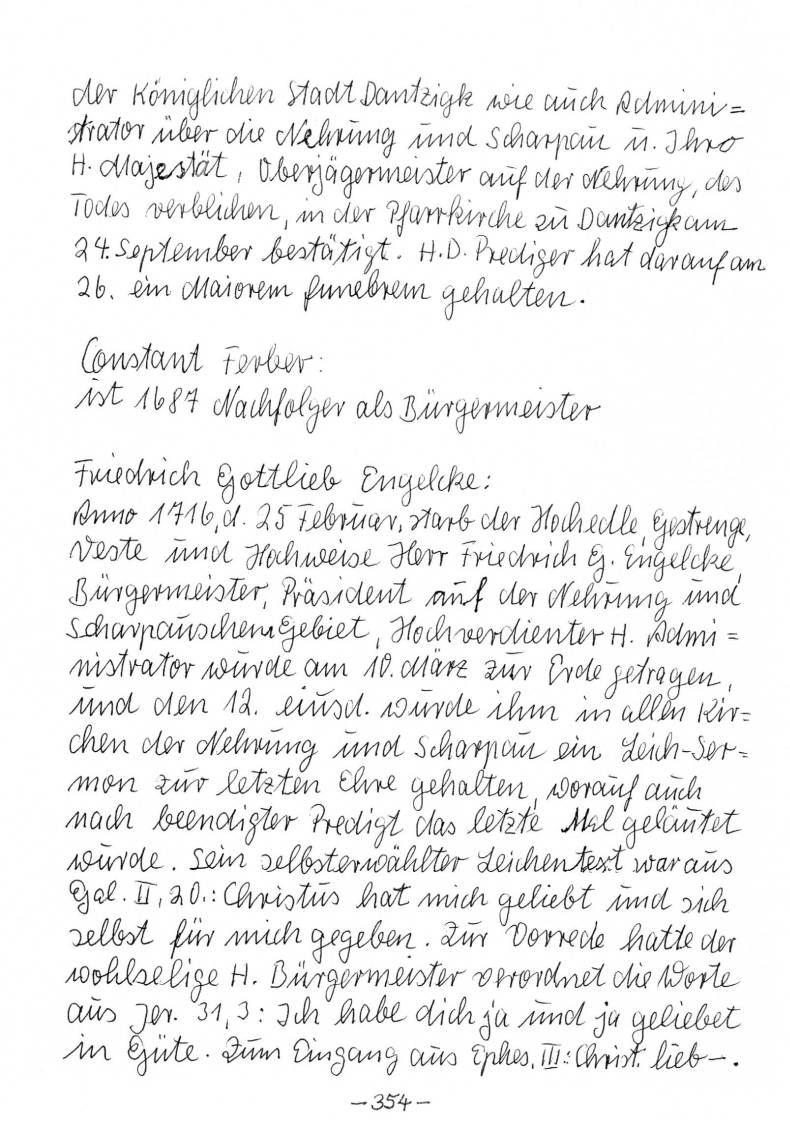 der Königlichen Stadt Dantzigk wie auch Admini=
strator über die Nehrung und Scharpau u. Ihro
H. Majestät, Oberjägermeister auf der Nehrung, des
Todes verblichen, in der Pfarrkirche zu Dantzigk am
24. September bestätigt. H.D. Prediger hat darauf am
26. ein Maiorem funebrem gehalten.
Constant Ferber:
ist 1687 Nachfolger als Bürgermeister
Friedrich Gottlieb Engelcke:
Anno 1716, d. 25 Februar, starb der Hochedle, Gestrenge,
Veste und Hochweise Herr Friedrich G. Engelcke,
Bürgermeister, Präsident auf der Nehrung und
Scharpauschen Gebiet, Hochverdienter H. Admi=
nistrator wurde am 10. März zur Erde getragen,
und den 12. eiusd. wurde ihm in allen Kir=
chen der Nehrung und Scharpau ein Leich-Ser=
mon zur letzten Ehre gehalten, worauf auch
nach beendigter Predigt das letzte Mal geläutet
wurde. Sein selbsterwählter Leichentext war aus
Gal. II, 20.: Christus hat mich geliebt und sich
selbst für mich gegeben. Zur Vorrede hatte der
wohlselige H. Bürgermeister verordnet die Worte
aus Jer. 31,3: Ich habe dich ja und ja geliebet
in Güte. Zum Eingang aus Ephes. III.: Christ. lieb-.
-354-